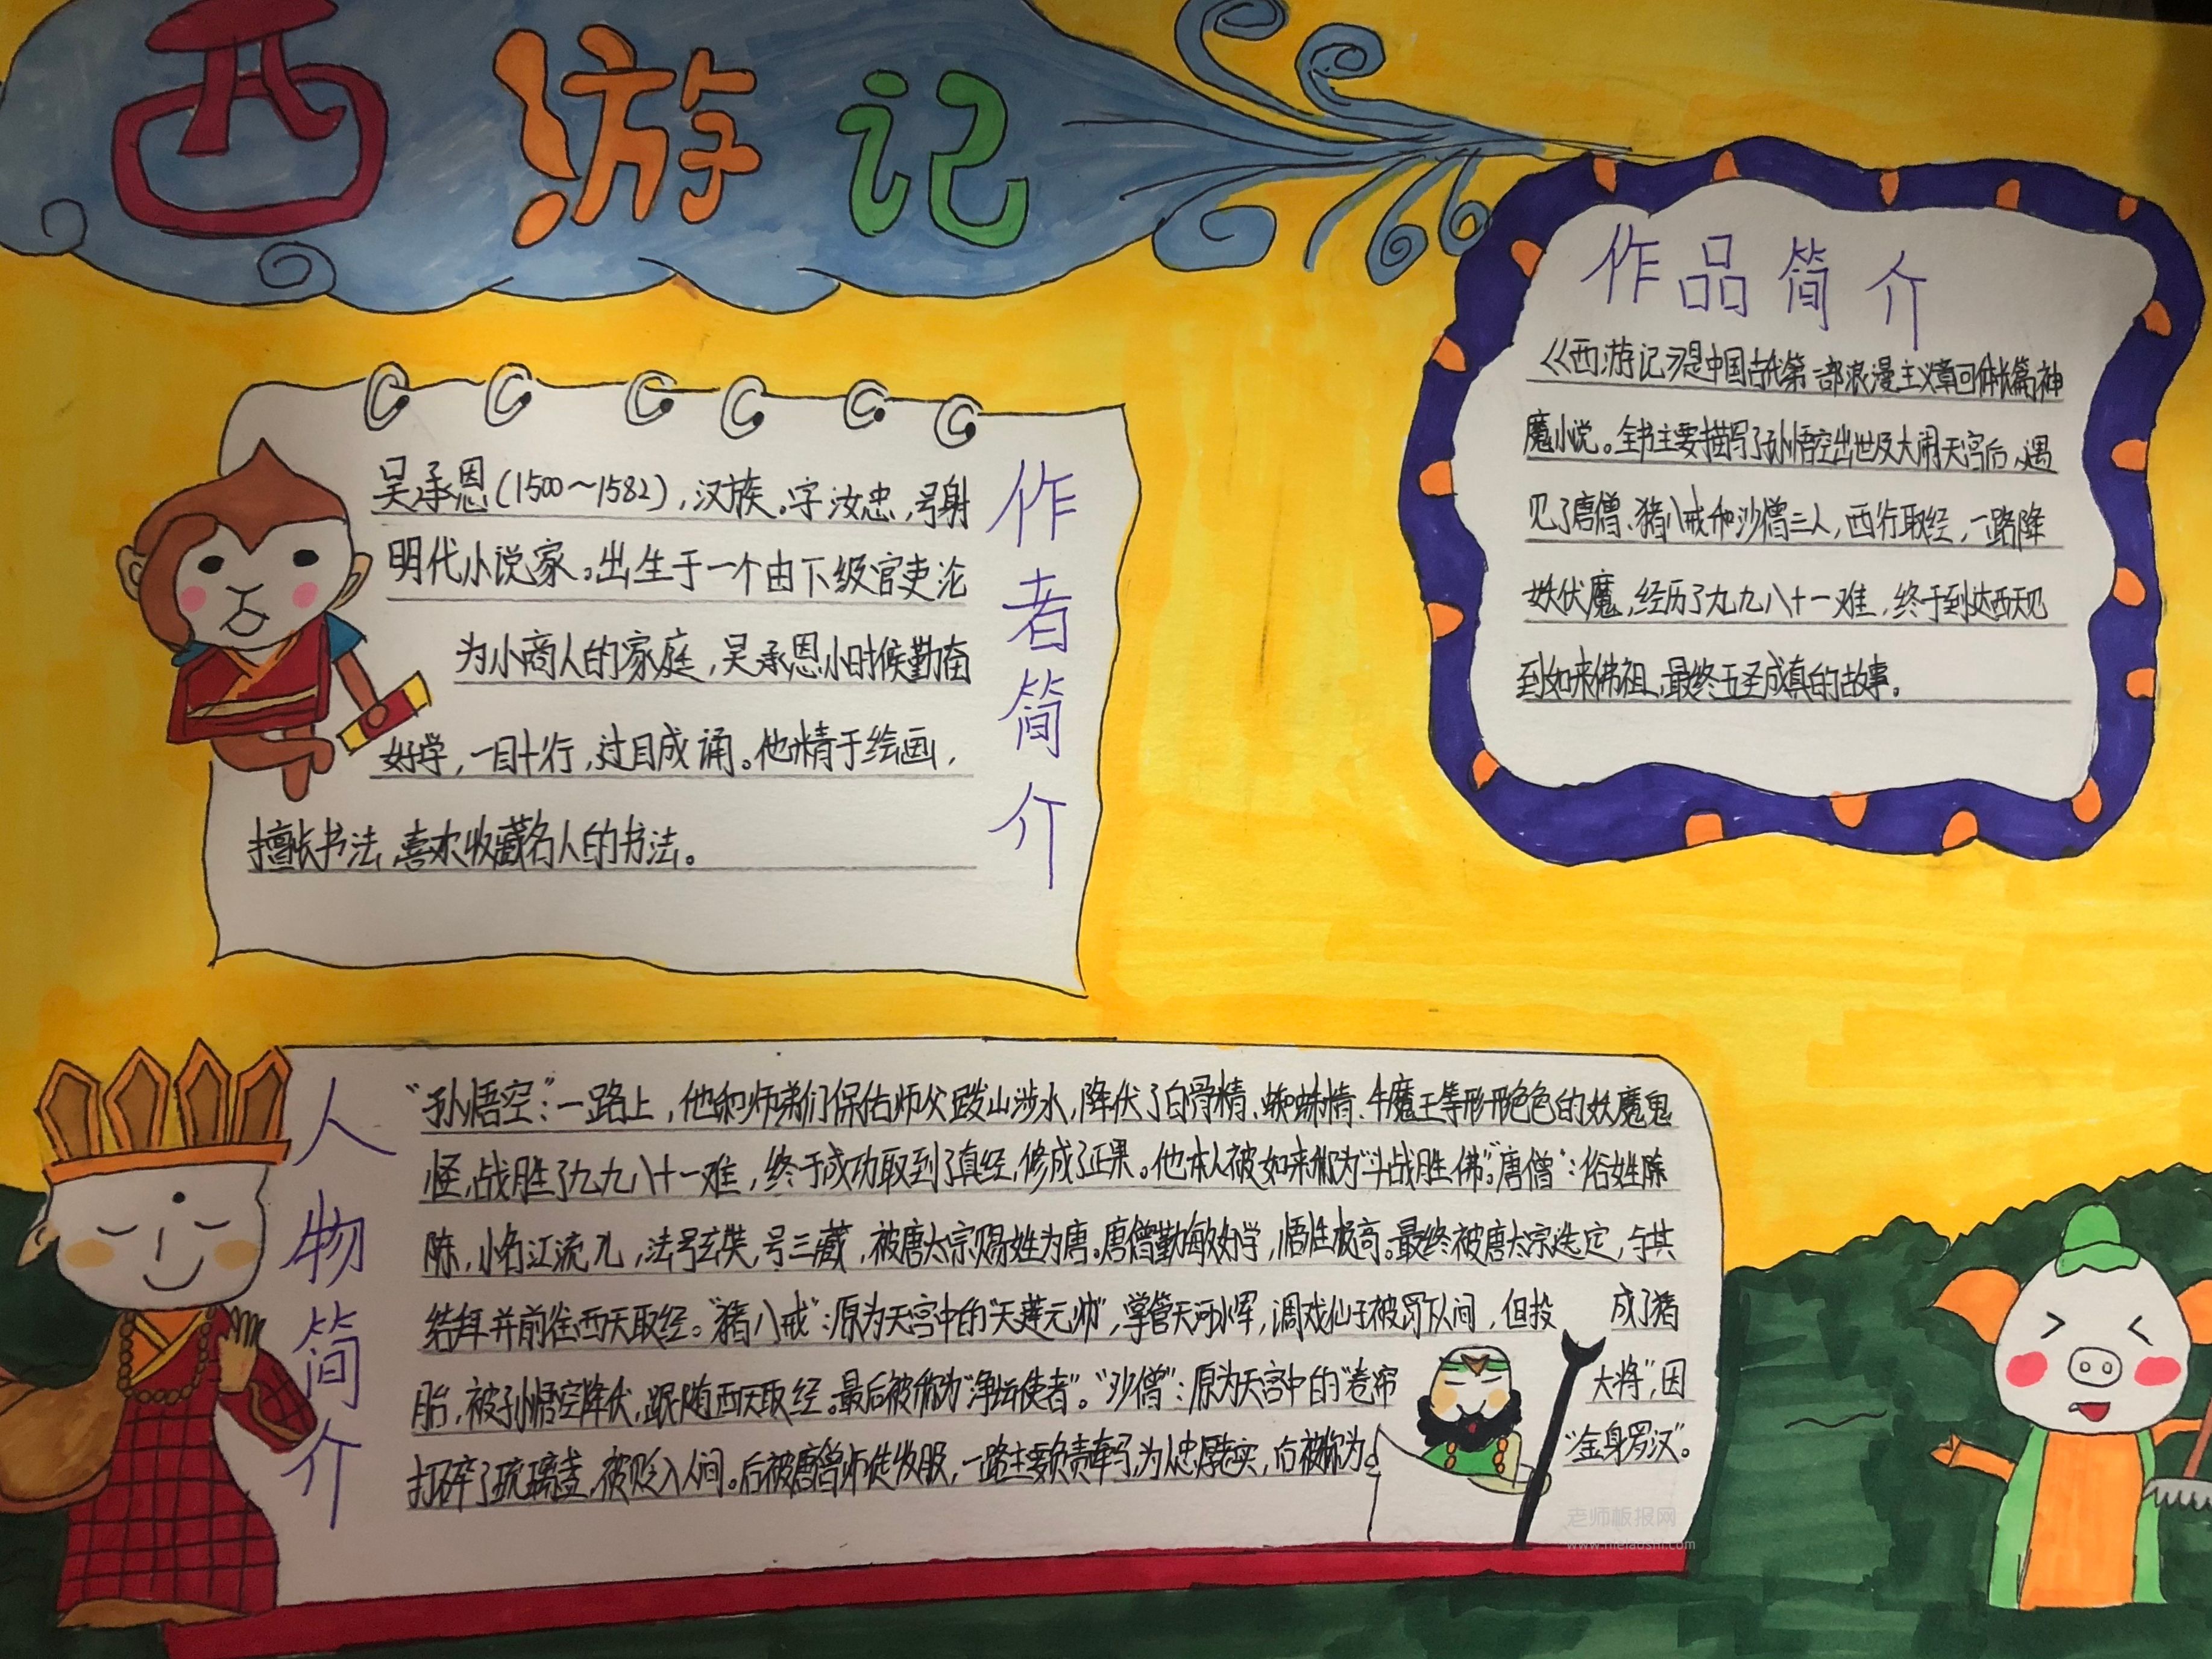 西游记
作品简介
《西游记》是中国古代第一部浪漫主义章回体长篇神
魔小说。全书主要描写了孙悟空出世及大闹天宫后,遇
见了唐僧、猪八戒和沙僧三人,西行取经,一路降
妖伏魔,经历了九九八十一难,终于到达西天见
到如来佛祖,最终五圣成真的故事。
作者简介
吴承恩(1500～1582),汉族。字汝忠,号射
明代小说家。出生于一个由下级官吏沦
为小商人的家庭,吴承恩小时候勤奋
好学,一目十行,过目成诵。他精于绘画,
擅长书法,喜欢收藏名人的书法。
人物简介
“孙悟空”:一路上,他和师弟们保佑师父跋山涉水,降伏了白骨精、蜘蛛精、牛魔王等形形色色的妖魔鬼
怪,战胜了九九八十一难,终于成功取到了真经,修成了正果。他本人被如来称为“斗战胜佛”。“唐僧”:俗姓陈
陈,小名江流儿,法号玄奘,号三藏,被唐太宗赐姓为唐。唐僧勤敏好学,悟性极高。最终被唐太宗选定,与其
结拜并前往西天取经。“猪八戒”:原为天宫中的“天蓬元帅”,掌管天河水军,调戏仙子被罚下人间,但投成了猪
胎,被孙悟空降伏,跟随西天取经。最后被称为“净坛使者”。“沙僧”:原为天宫中的“卷帘大将”,因
打碎了琉璃盏,被贬入人间。后被唐僧师徒收服,一路主要负责牵马,为人忠厚老实,后被称为“金身罗汉”。
老师板报网